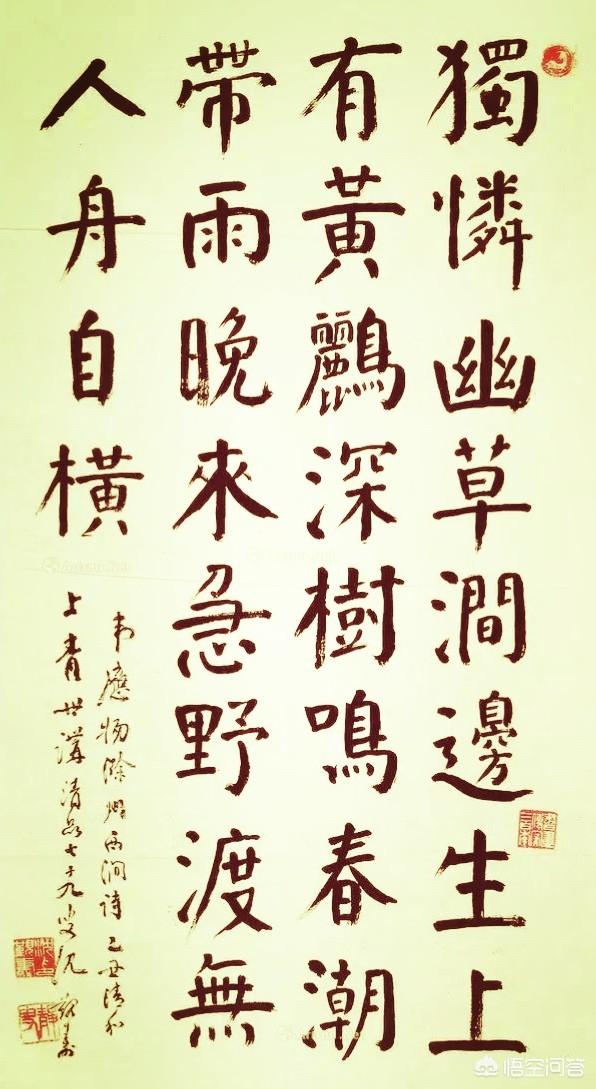 獨憐幽草澗邊生上
有黃鸝深樹鳴春潮
帶雨晚來急野渡無
人舟自橫
韋應物滁州西涧詩乙丑清和
上青世講清品七十九叟沈覲壽
悟空问答